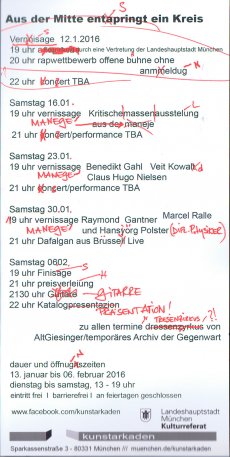 Aus der Mitte entspringt ein Kreis
S
Vernissage 12.1.2016
19 uhr durch eine Vertretung der Landeshauptstadt München
20 uhr rapwettbewerb offene buhne ohne
anmeldug
22 uhr Konzert TBA
Samstag 16.01.
19 uhr vernissage Kritische massen ausstelung L
MANEGE aus der maneje
21 uhr konzert/performance TBA
Samstag 23.01.
19 uhr vernissage Benedikt Gahl Veit Kowald
MANEGE Claus Hugo Nielsen
21 uhr konzert/performance TBA
Samstag 30.01.
Marcel Ralle
19 uhr vernissage Raymond Gantner
MANEGE und Hansjörg Polster (DIPL. PHYSIKER)
21 uhr Dafalgan aus Brüssel Live
Samstag 0602
19 uhr Finisage S
21 uhr preisverleiung H
2130 uhr GITARRE
PRÄSENTATION!
22 uhr Katalogpresentazion
TRESENZIRKUS!?!
zu allen termine dressenzyrkus von
AltGiesinger/temporäres Archiv der Gegenwart
dauer und öffnugszeiten N
13. januar bis 06. februar 2016
dienstag bis samstag, 13 - 19 uhr
eintritt frei I barrierefrei I an feiertagen geschlossen
www.facebook.com/kunstarkaden
Landeshauptstadt
München
Kulturreferat
kunstarkaden
Sparkassenstraße 3 - 80331 München /// muenchen.de/kunstarkaden